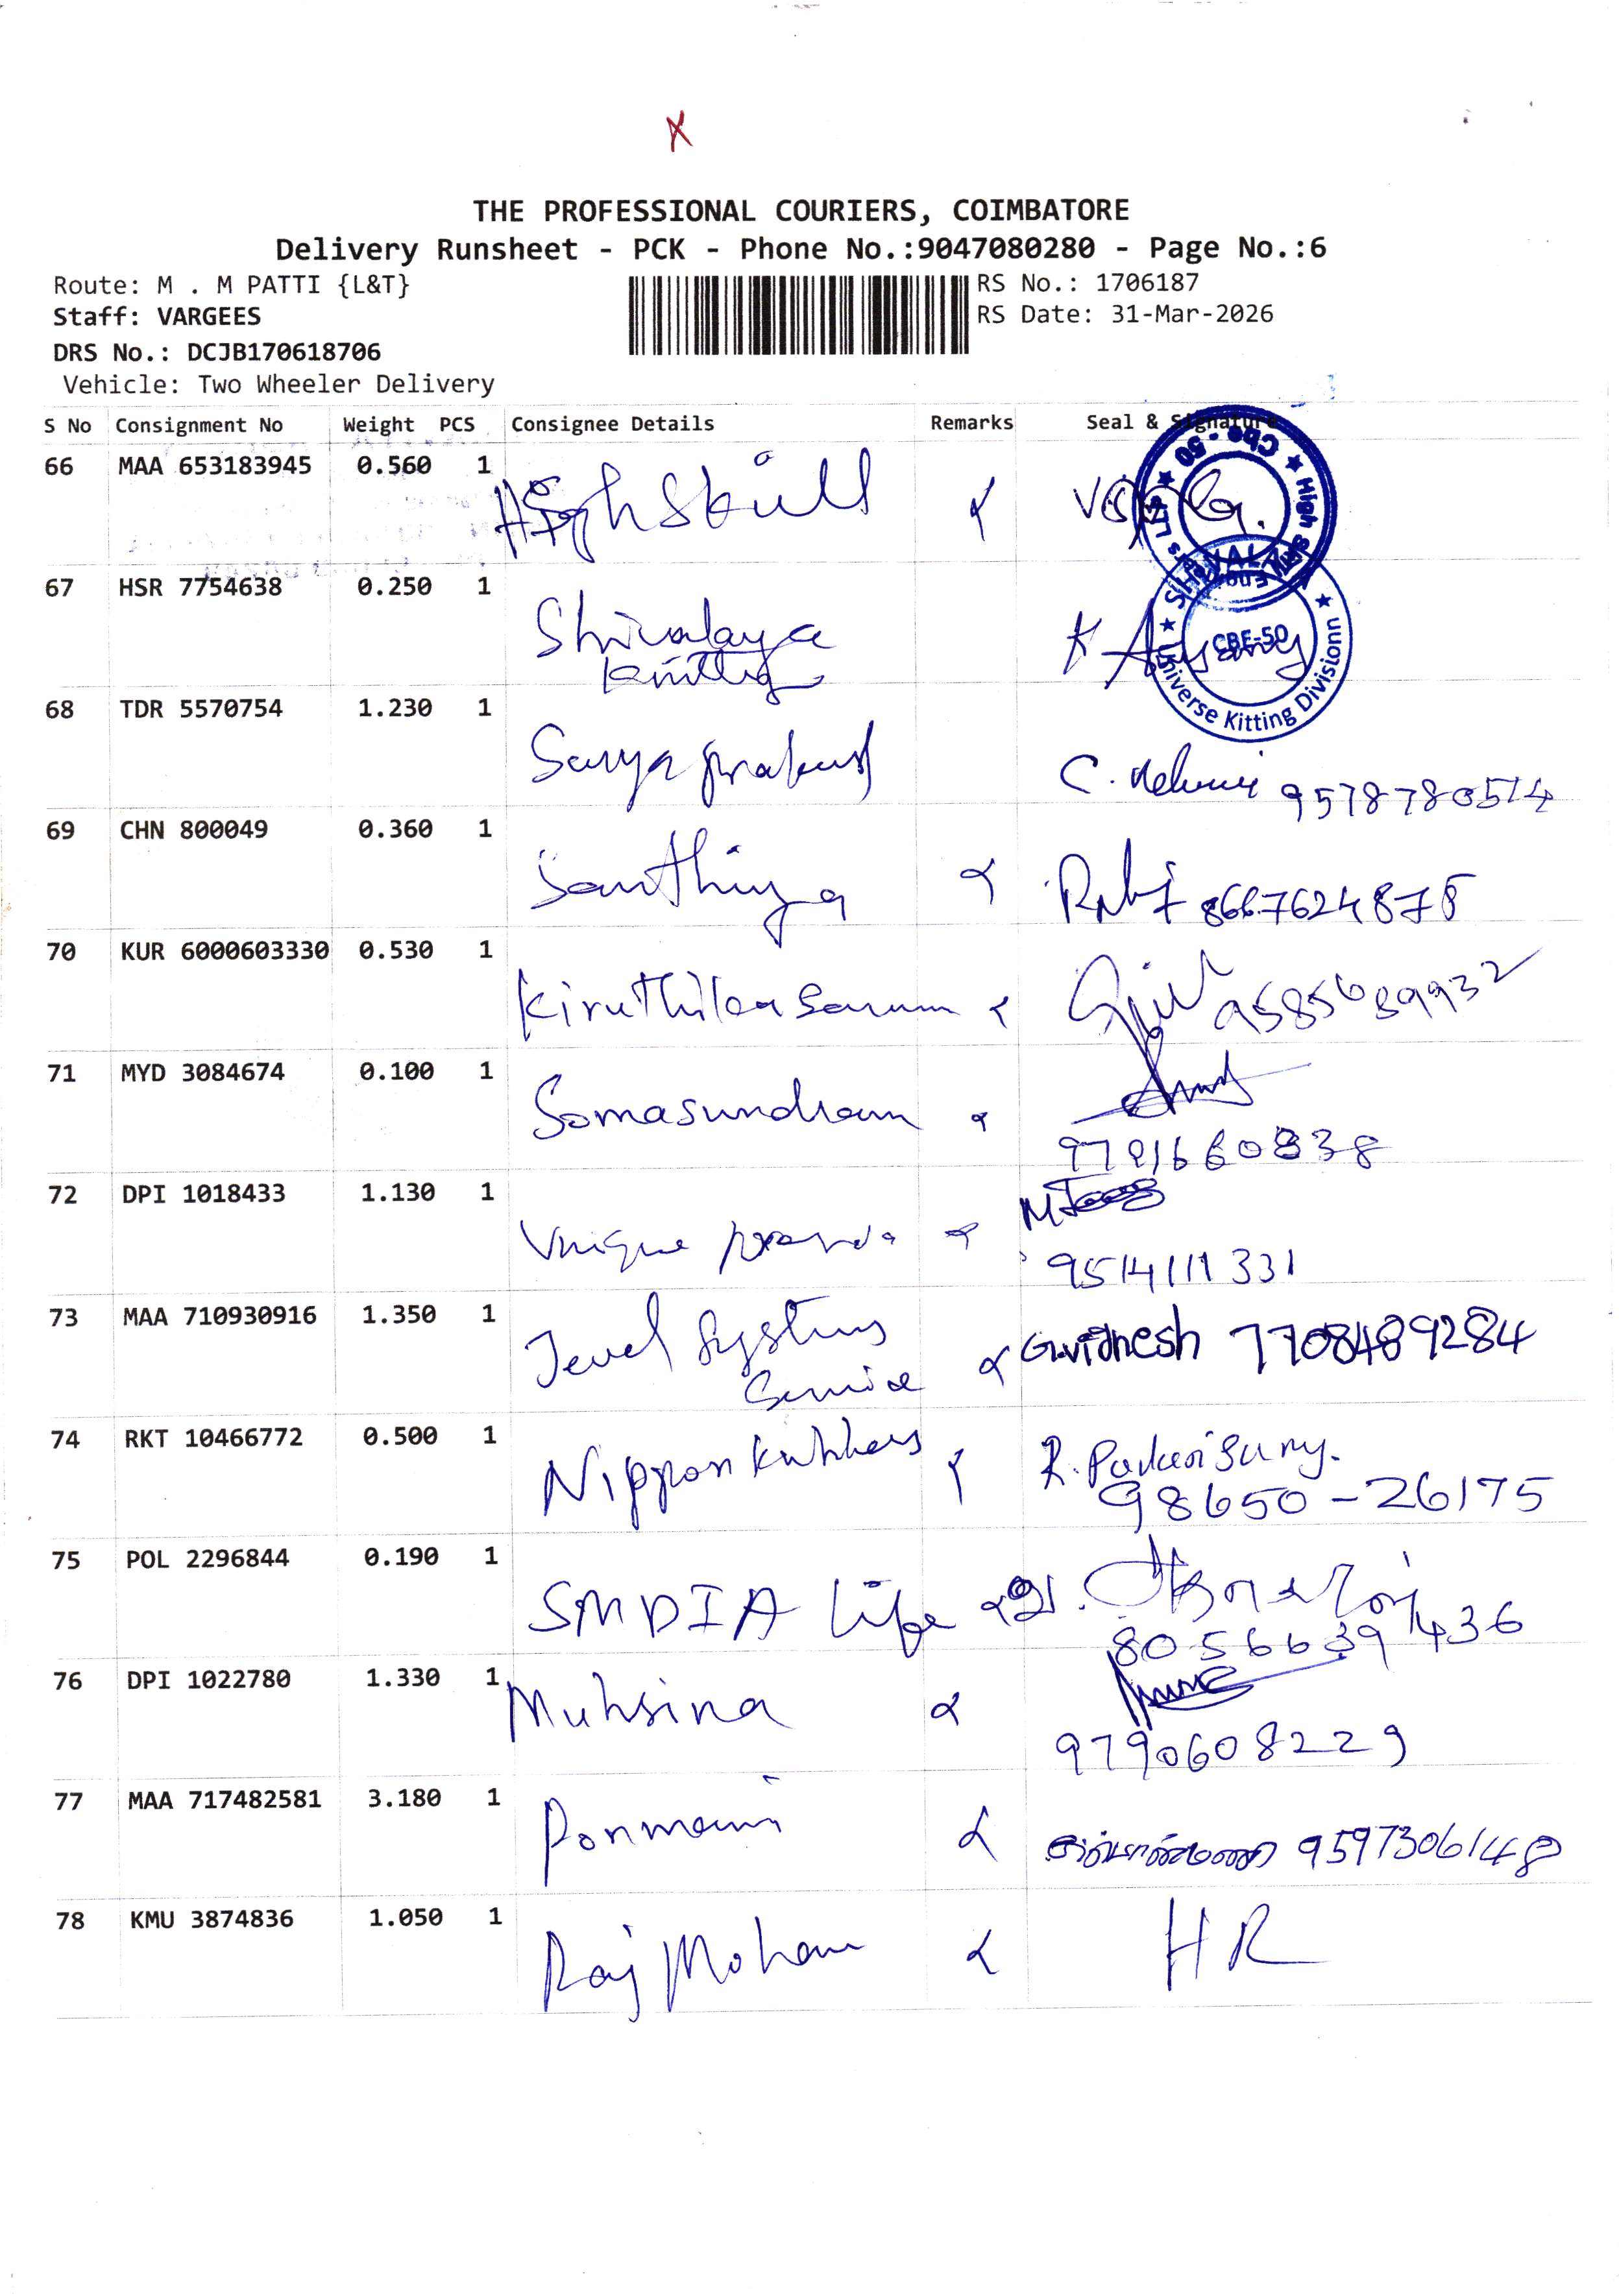 X
THE PROFESSIONAL COURIERS, COIMBATORE
Delivery Runsheet - PCK - Phone No.:9047080280 - Page No.:6
Route: M . M PATTI {L&T}
RS No.: 1706187
Staff: VARGEES
RS Date: 31-Mar-2026
DRS No.: DCJB170618706
Vehicle: Two Wheeler Delivery
S No Consignment No Weight PCS Consignee Details Remarks Seal & Signature
66 MAA 653183945 0.560 1 High Skill
67 HSR 7754638 0.250 1 Shivalaya
CBE-50
Universe Kitting Divisionn
68 TDR 5570754 1.230 1 Surya prakash
C. 9578780514
69 CHN 800049 0.360 1 Santhiya
8667624875
70 KUR 6000603330 0.530 1 Kiruthika Saranm
9585689932
71 MYD 3084674 0.100 1 Somasundram
72 DPI 1018433 1.130 1 Unique
9514111331
73 MAA 710930916 1.350 1 Jevel Systems
Service
G.vignesh 7708489284
74 RKT 10466772 0.500 1 Nippon
98650-26175
75 POL 2296844 0.190 1 SMDIA Life
8056639436
76 DPI 1022780 1.330 1 Muhsina
9790608229
77 MAA 717482581 3.180 1 Ponmani
9597306148
78 KMU 3874836 1.050 1 Raj Mohan HR